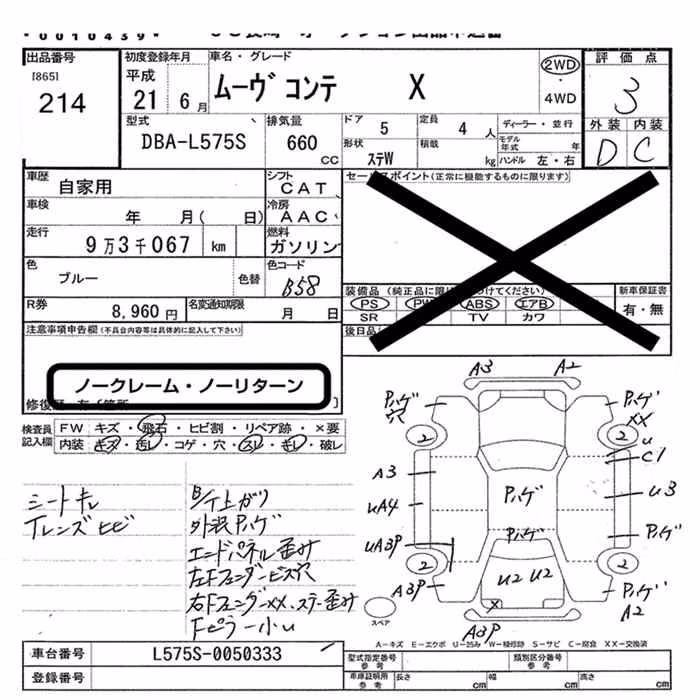 *0010439*
出品番号
[865]
214
初度登録年月
平成
21年 6月
車名・グレード
ムーヴ コンテ X
2WD
・
4WD
評価点
3
外装 内装
D C
型式
DBA-L575S
排気量
660
CC
ドア
5
定員
4 人
形状
ステW
積載
kg
ディーラー・並行
モデル年式 年
ハンドル 左・右
車歴
自家用
シフト
CAT
車検
年 月( 日)
冷房
AAC
走行
9万3千067 km
燃料
ガソリン
色
ブルー
色替
色コード
B58
R券
8,960円
名変通知期限
月 日
セールスポイント(正常に機能するものに限ります)
装備品(純正品に限り けてください)
PS PW ABS エアB
SR TV カワ
新車保証書
有・無
後日品
注意事項申告欄(不具合内容等は具体的に記入して下さい)
ノークレーム・ノーリターン
検査員
記入欄
FW キズ・飛石・ヒビ割・リペア跡・×要
内装 キズ・汚レ・コゲ・穴・スレ・キレ・破レ
シートキレ
Tレンズヒビ
B/T上ガリ
外装Pハゲ
エンドパネル歪み
左Fフェンダービス穴
右FフェンダーXX、ステー歪み
Fピラー小U
A3 A2
Pハゲ
穴
Pハゲ
XX
2 2
U
C1
A3
UA4
U3
Pハゲ
Pハゲ
UA3P
Pハゲ
2 2
A3P
U2 U2
X
Pハゲ
A2
A3P
スペア
A―キズ E―エクボ U―凹み W―補修跡 S―サビ C―腐食 XX―交換済
車台番号
L575S-0050333
登録番号
型式指定番号
参考
類別区分番号
参考
車庫証明用
参考
長さ cm
幅 cm
高さ cm